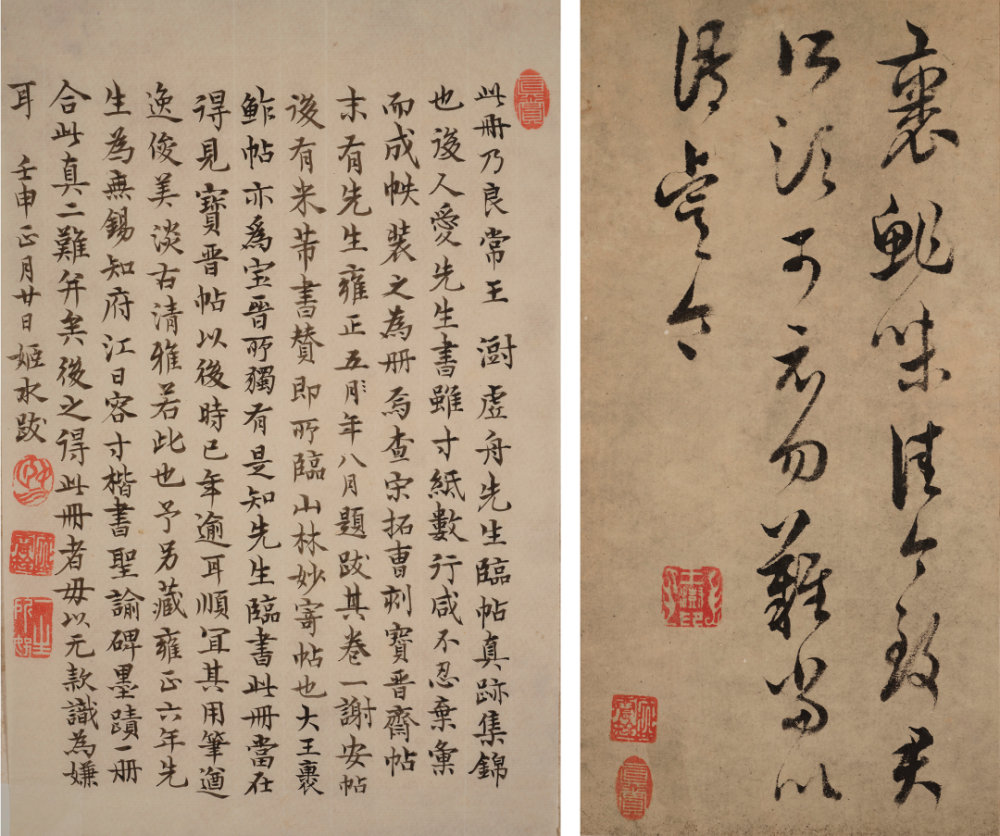 裹鮓味佳今致君
所須可示勿難當以
語虞令
王澍印
真賞
真賞
此冊乃良常王澍虛舟先生臨帖真跡集錦
也後人愛先生書雖寸紙數行咸不忍棄彙
而成帙裝之為冊焉查宋拓曹刻寶晉齋帖
末有先生雍正五年八月題跋其卷一謝安帖
後有米芾書贊即所臨山林妙寄帖也大王裹
鮓帖亦爲宝晉所獨有是知先生臨書此冊當在
得見寶晉帖以後時已年逾耳順宜其用筆遒
逸俊美淡古清雅若此也予另藏雍正六年先
生為無錫知府江日容寸楷書聖諭碑墨蹟一冊
合此真二難并矣後之得此冊者毋以无款識為嫌
耳 壬申正月廿日姬水跋